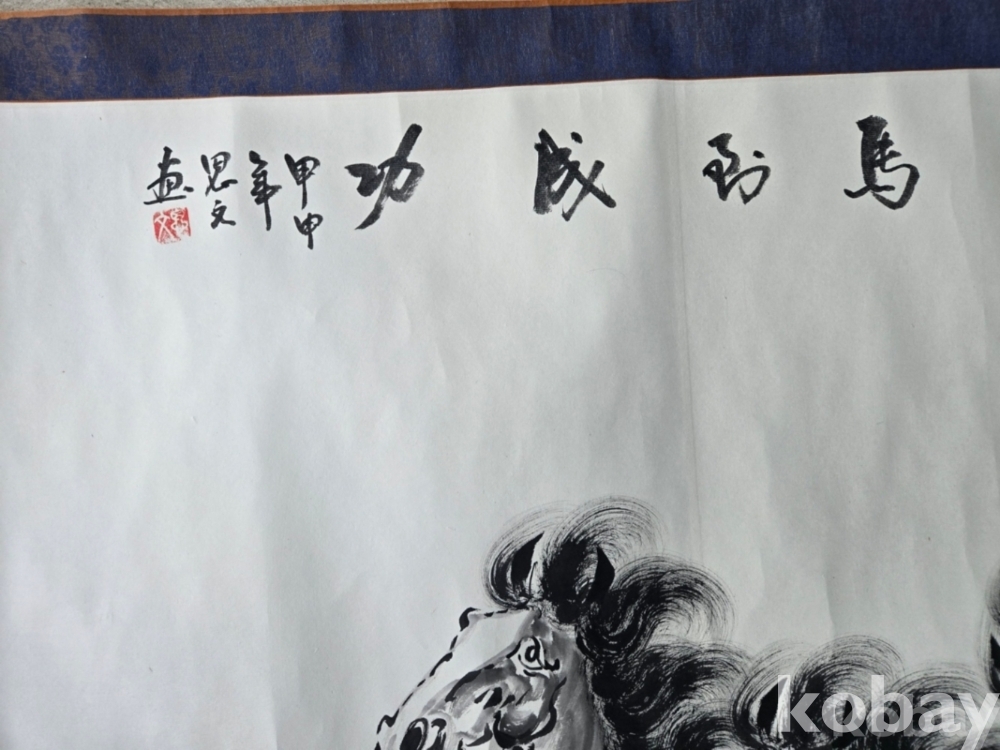 馬到成功
甲申
年
思文
画
思文
kobay